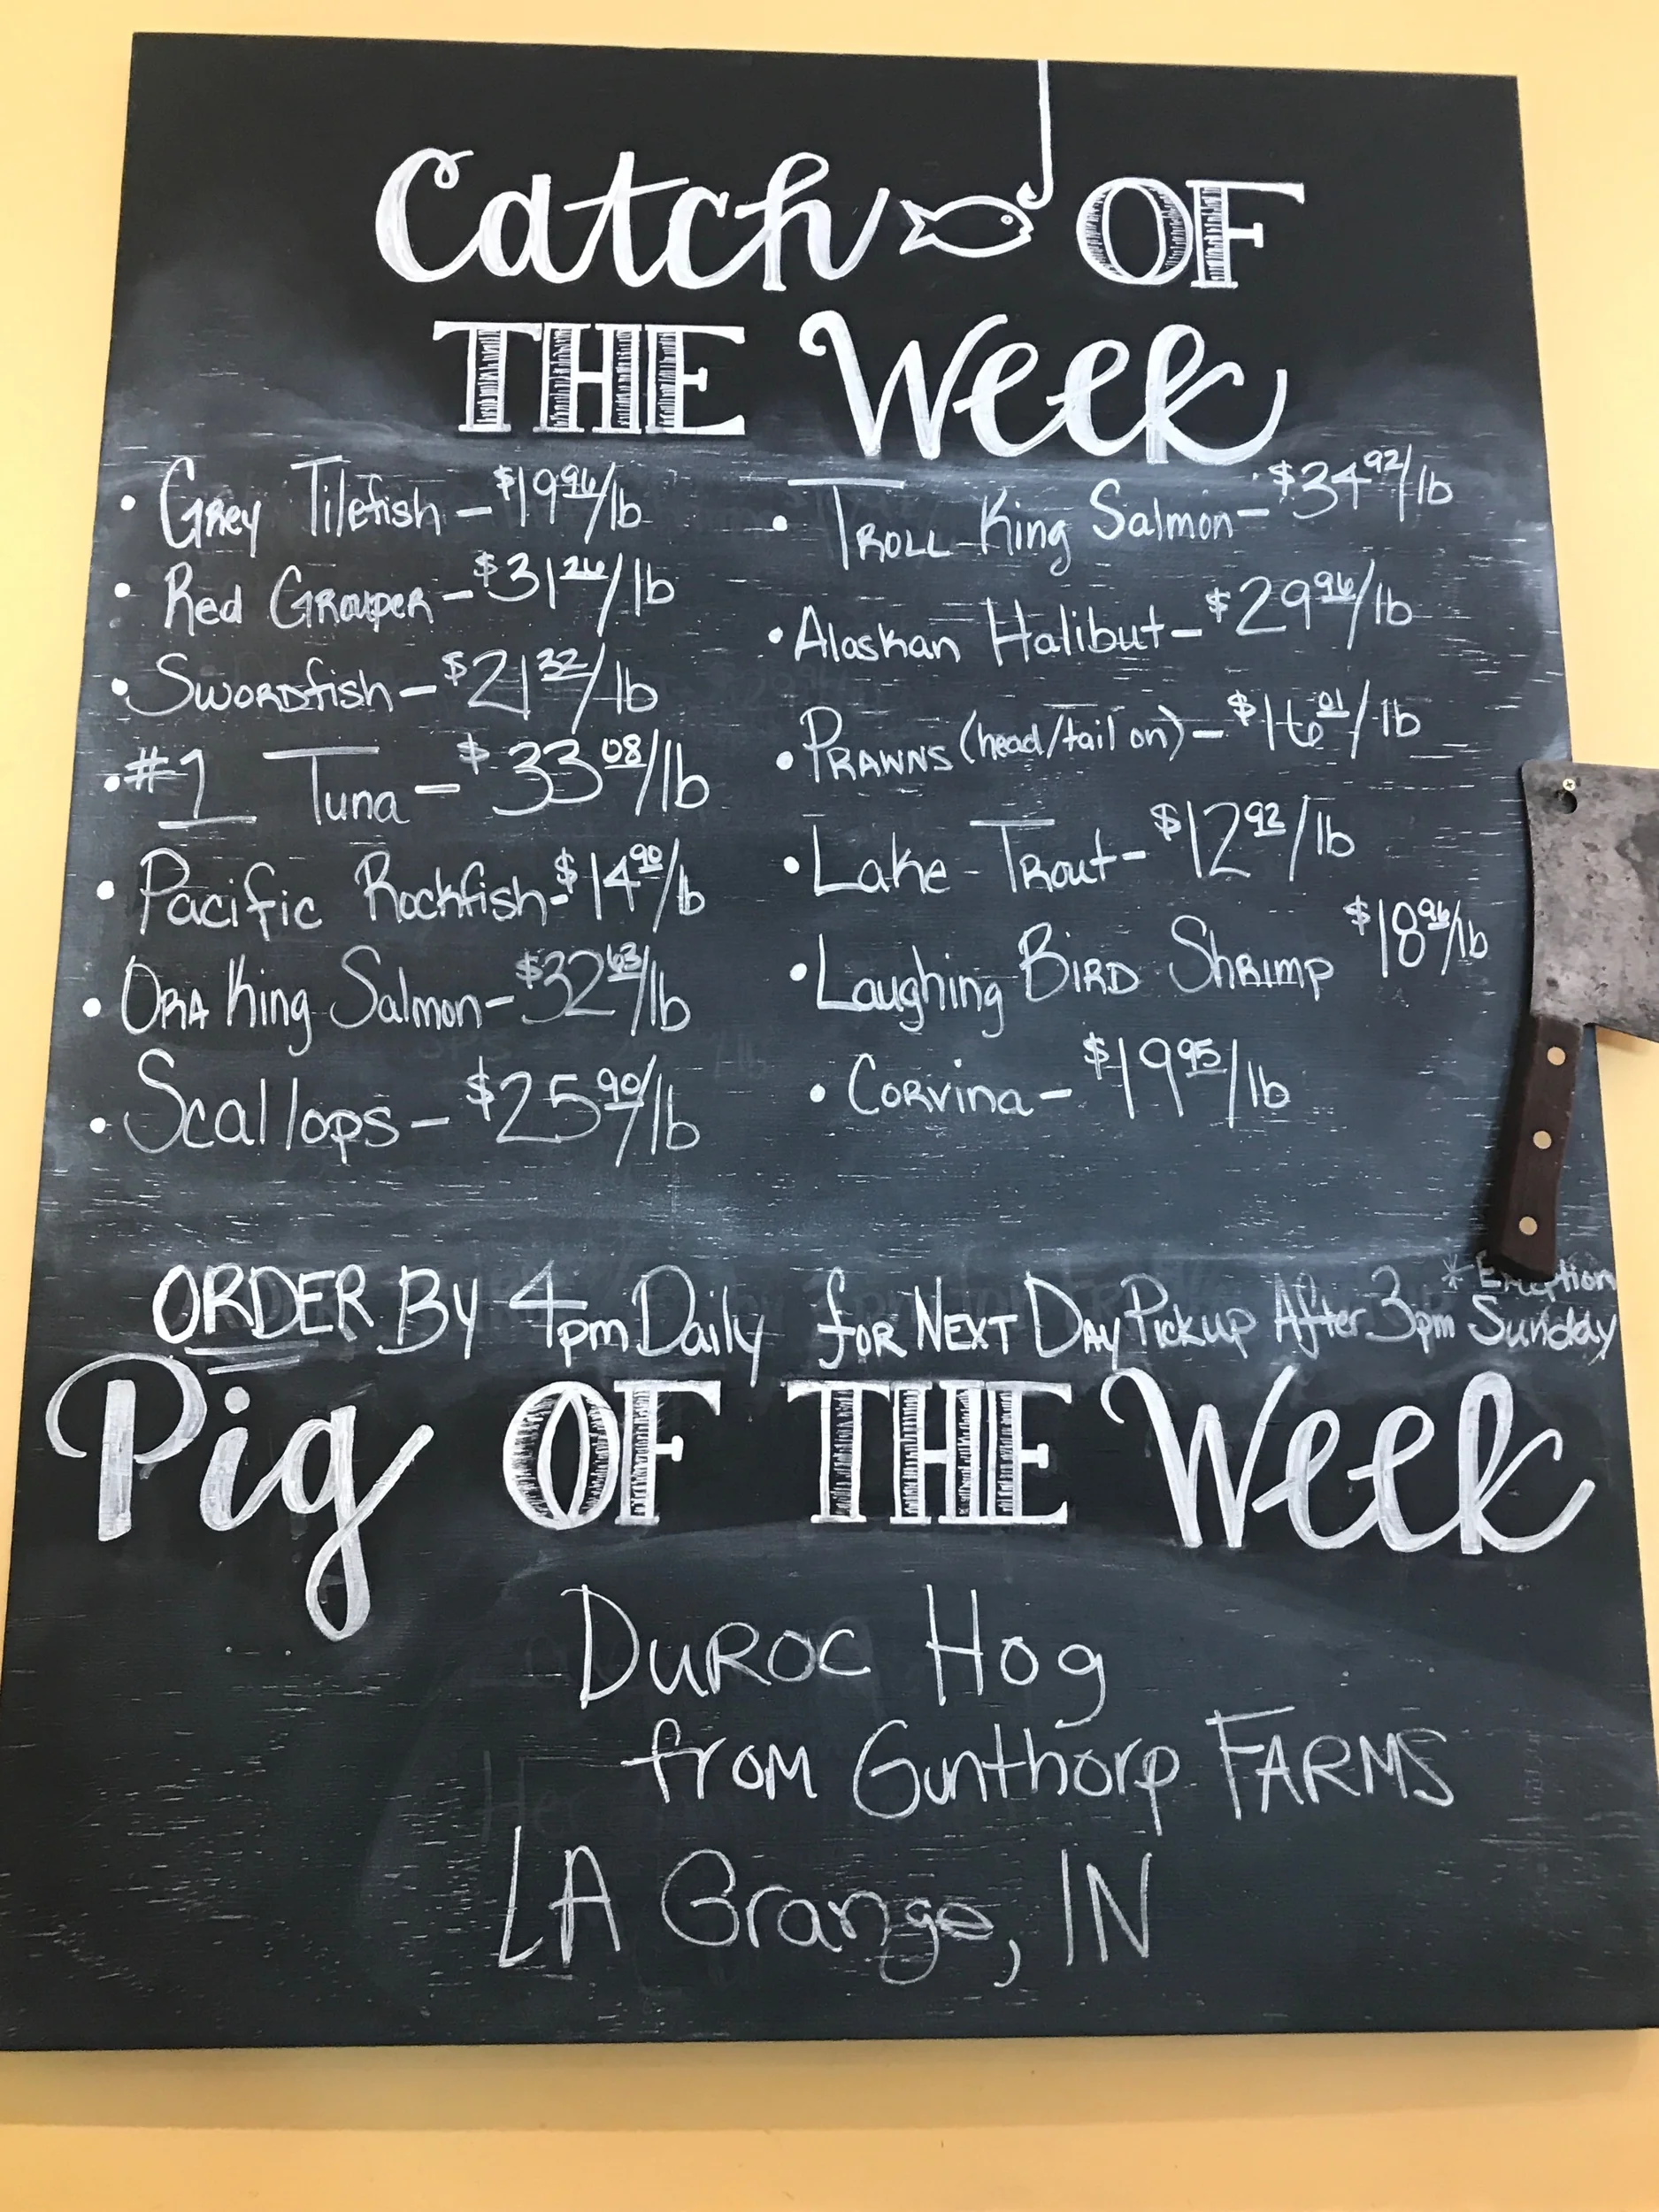 Catch OF
THE Week
• Grey Tilefish – $19.96/lb
• Red Grouper – $31.26/lb
• Swordfish – $21.32/lb
• #1 Tuna – $33.08/lb
• Pacific Rockfish – $14.90/lb
• Ora King Salmon – $32.63/lb
• Scallops – $25.90/lb
• Troll King Salmon – $34.92/lb
• Alaskan Halibut – $29.96/lb
• Prawns (head/tail on) – $16.01/lb
• Lake Trout – $12.92/lb
• Laughing Bird Shrimp $18.96/lb
• Corvina – $19.95/lb
ORDER By 4pm Daily for Next Day Pickup After 3pm * Sunday
Pig OF THE Week
Duroc Hog
from Gunthorp FARMS
LA Grange, IN